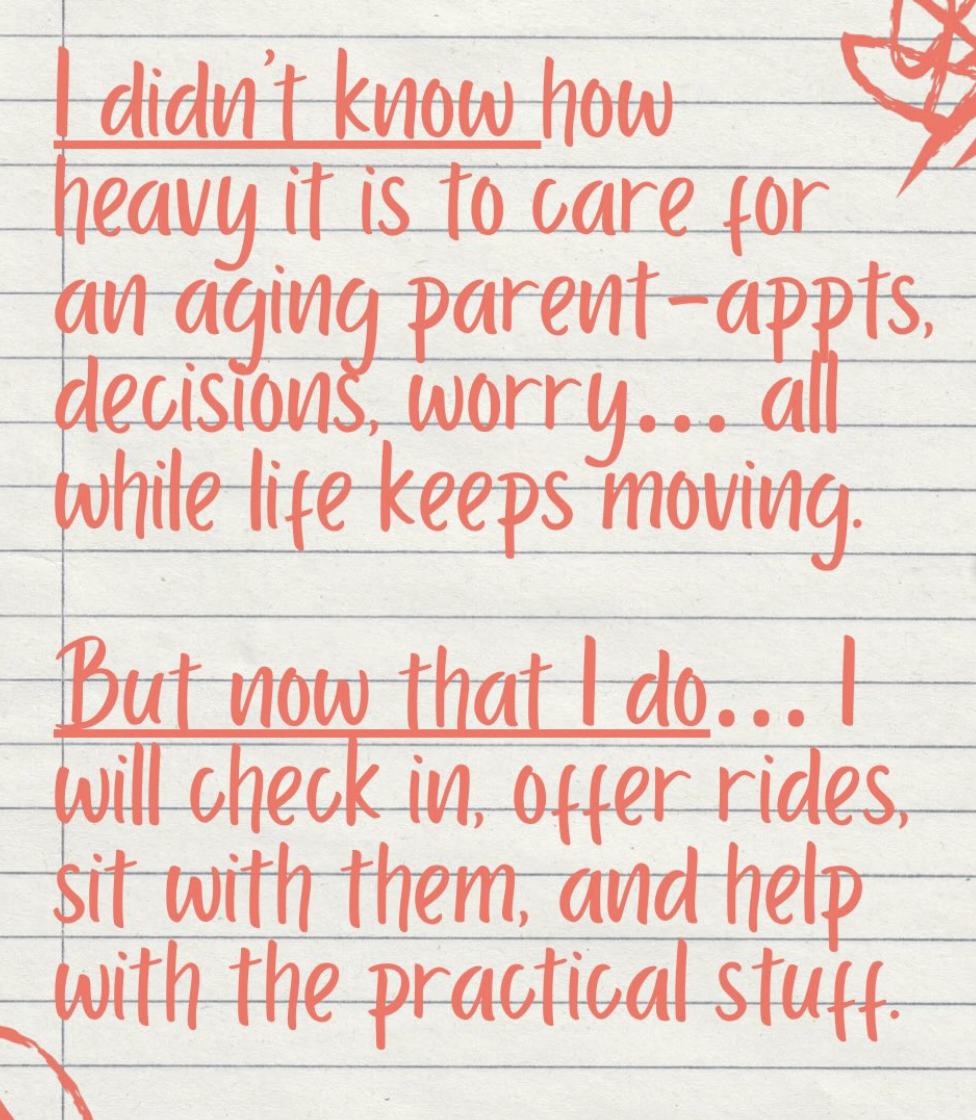 I didn't know how
heavy it is to care for
an aging parent–appts,
decisions, worry... all
while life keeps moving.
But now that I do... I
will check in, offer rides,
sit with them, and help
with the practical stuff.